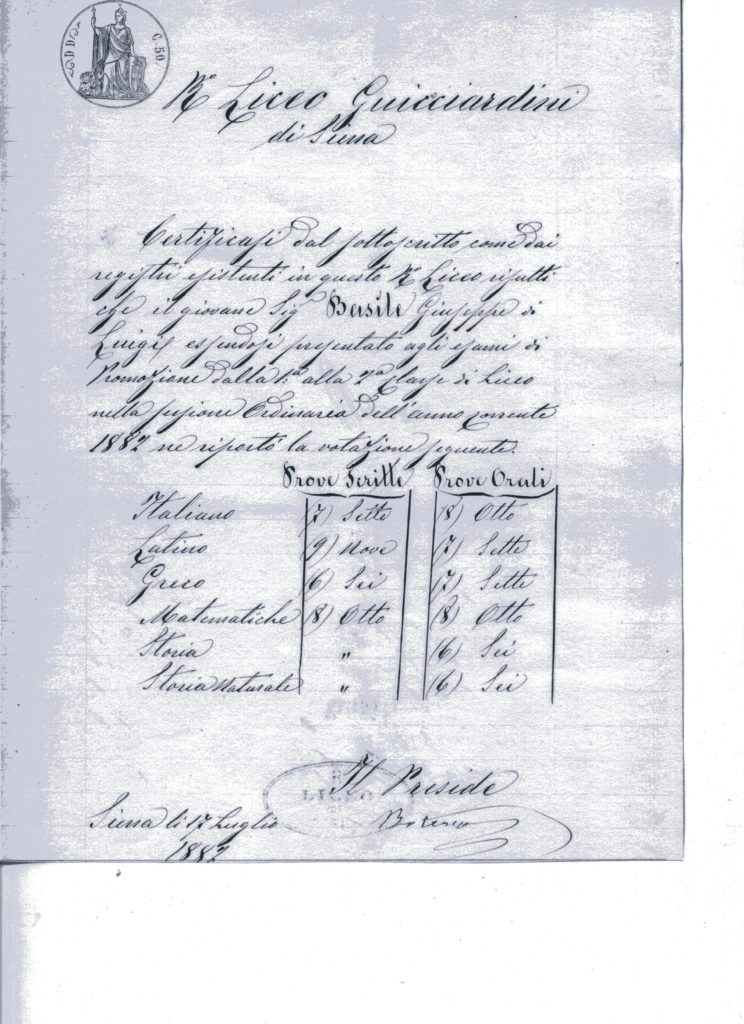 DD C. 50
R.º Liceo Guicciardini
di Siena
Certificasi dal sottoscritto come dai
registri esistenti in questo R. Liceo risulti
che il giovane Sigr Basile Giuseppe di
Luigi essendosi presentato agli esami di
Promozione dalla 1.ª alla 2.ª classe di Liceo
nella sessione Ordinaria dell'anno corrente
1882 ne riportò la votazione seguente.
Prove Scritte Prove Orali
Italiano (7) Sette (8) Otto
Latino (9) Nove (7) Sette
Greco (6) Sei (7) Sette
Matematiche (8) Otto (8) Otto
Storia " (6) Sei
Storia Naturale " (6) Sei
Il Preside
LICEO
Siena li 17 Luglio
1882